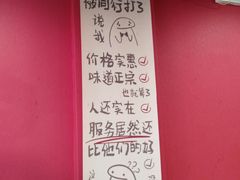 被同行打了
说我
价格实惠
味道正宗
也就算了
人还实在
服务居然还
比他们的好